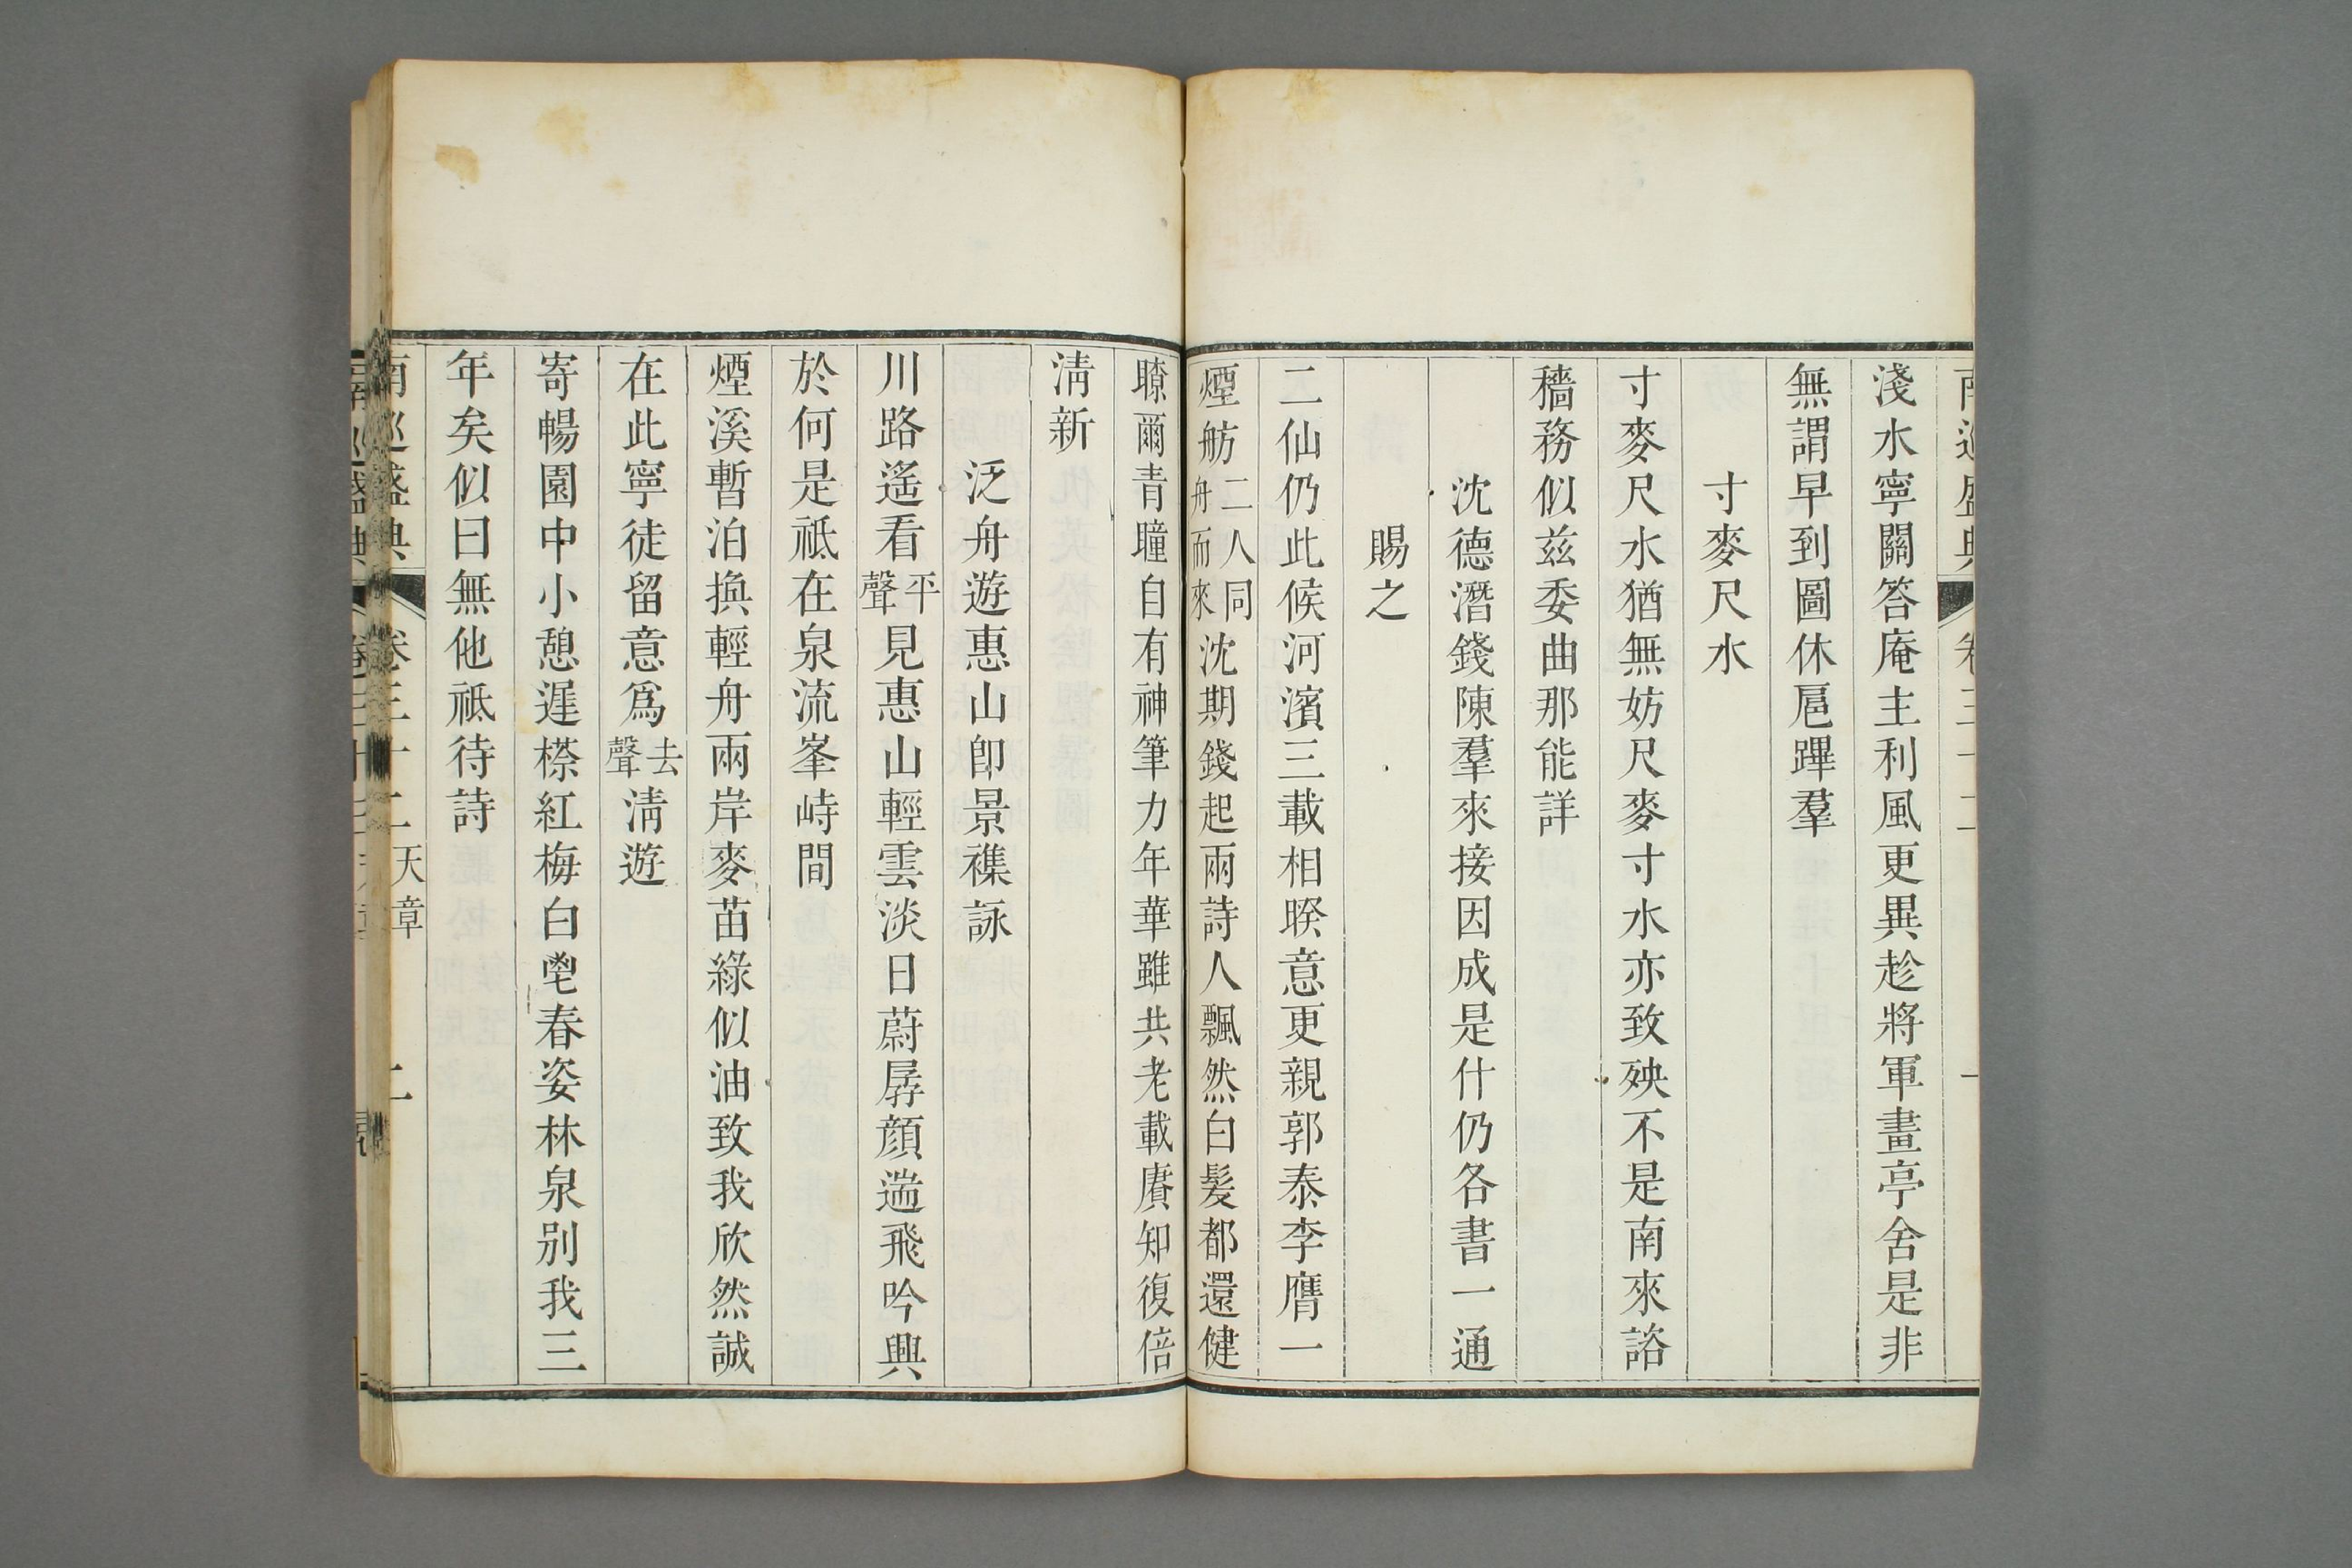 淺水寧關答庵主利風更異趁將軍畫亭舍是非
無謂早到圖休扈蹕羣
寸麥尺水
寸麥尺水猶無妨尺麥寸水亦致殃不是南來諮
穡務似兹委曲那能詳
沈德潛錢陳羣來接因成是什仍各書一通
賜之
二仙仍此候河濱三載相暌意更親郭泰李膺一
煙舫二人同舟而來沈期錢起兩詩人飄然白髮都還健
瞭爾青瞳自有神筆力年華雖共老載賡知復倍
淸新
泛舟遊惠山卽景襍詠
川路遙看平聲見惠山輕雲淡日蔚孱顔遄飛吟興
於何是祗在泉流峯峙間
煙溪暫泊換輕舟兩岸麥苗綠似油致我欣然誠
在此寧徒留意爲去聲淸遊
寄暢園中小憩遲櫒紅梅白鬯春姿林泉別我三
年矣似曰無他祗待詩
南巡盛典 卷三十二 天章 二